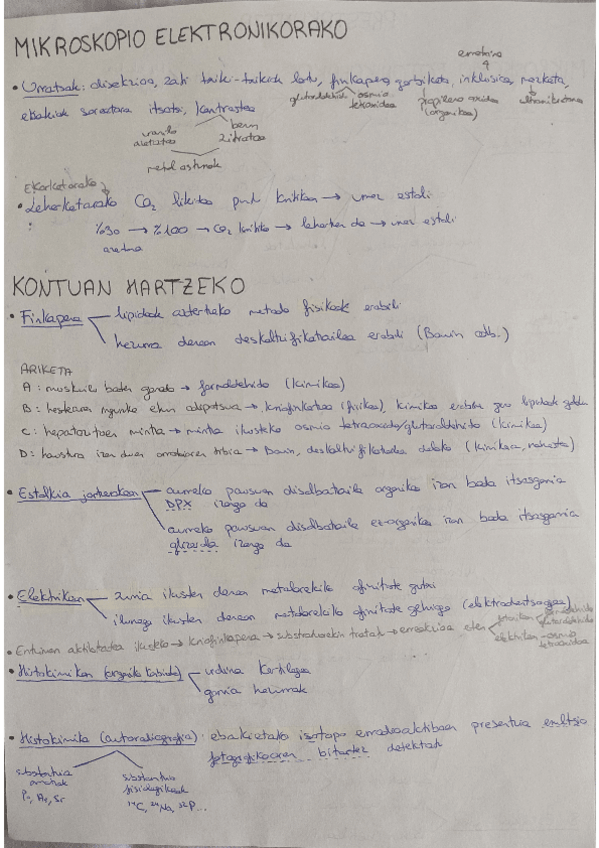 MIKROSKOPIO ELEKTRONIKORAKO
erretxina
• Urratsak: disekzioa, zati txiki-txikiak lortu, finkapena, gortziketa, inklusioa, mozketa,
glutaraldehido osmio tetraoxidoa propileno oxidoa (organikoa) ultramikrotomoa
ebakiak saretara itsatsi, kontrastea
uranilo azetatoa berun zitratoa
metal astunak
Ekorketarako
• Leherketarako CO₂ likido puntu kritikoan → urrez estali
%30 → %100 → CO₂ kritiko → lehortzen da → urrez estali
azetona
KONTUAN HARTZEKO
• Finkapena lipidoak aztertzeko metodo fisikoak erabili
hezurra denean deskaltzifikatzailea erabili (Bouin adb.)
ARIKETA
A: muskulu baten garato → formaldehido (kimikoa)
B: kriofinkatzea (fisikoa), kimikoa erabiliz gero lipidoak galdu
C: hepatozitoen mintza → mintza ikusteko osmio tetraoxidoa/glutaraldehido (kimikoa)
D: haustura izan duen arratoiaren tibia → Bouin, deskaltzifikatzailea delako (kimikoa, nahasta)
• Estalkia jartzerakoan aurreko pausuan disolbatzaile organikoa izan bada itsasgarria
DPX izango da
aurreko pausuan disolbatzaile ez-organikoa izan bada itsasgarria
glizerola izango da
• Elektrikoan zuria ikusten denean metalarekiko afinitate gutxi
iluna ikusten denean metalarekiko afinitate gehiago (elektrodentsoagoa)
• Entzimen aktibitatea ikusteko → kriofinkapena → substratuarekin tratatu → erreakzioa eten
fotoniko formaldehido glutaraldehido
elektroiko osmio tetraoxidoa
• Histokimikan urdina kartilagoa
gorria hezurrak
• Histokimika (autoradiografia): ebakietako isotopo erradioaktiboen presentzia emultsio
fotografikoaren bitartez detektatu
substantzia arrotzak substantzia fisiologikoak
Sr ¹⁴C, ²⁴Na, ³²P...